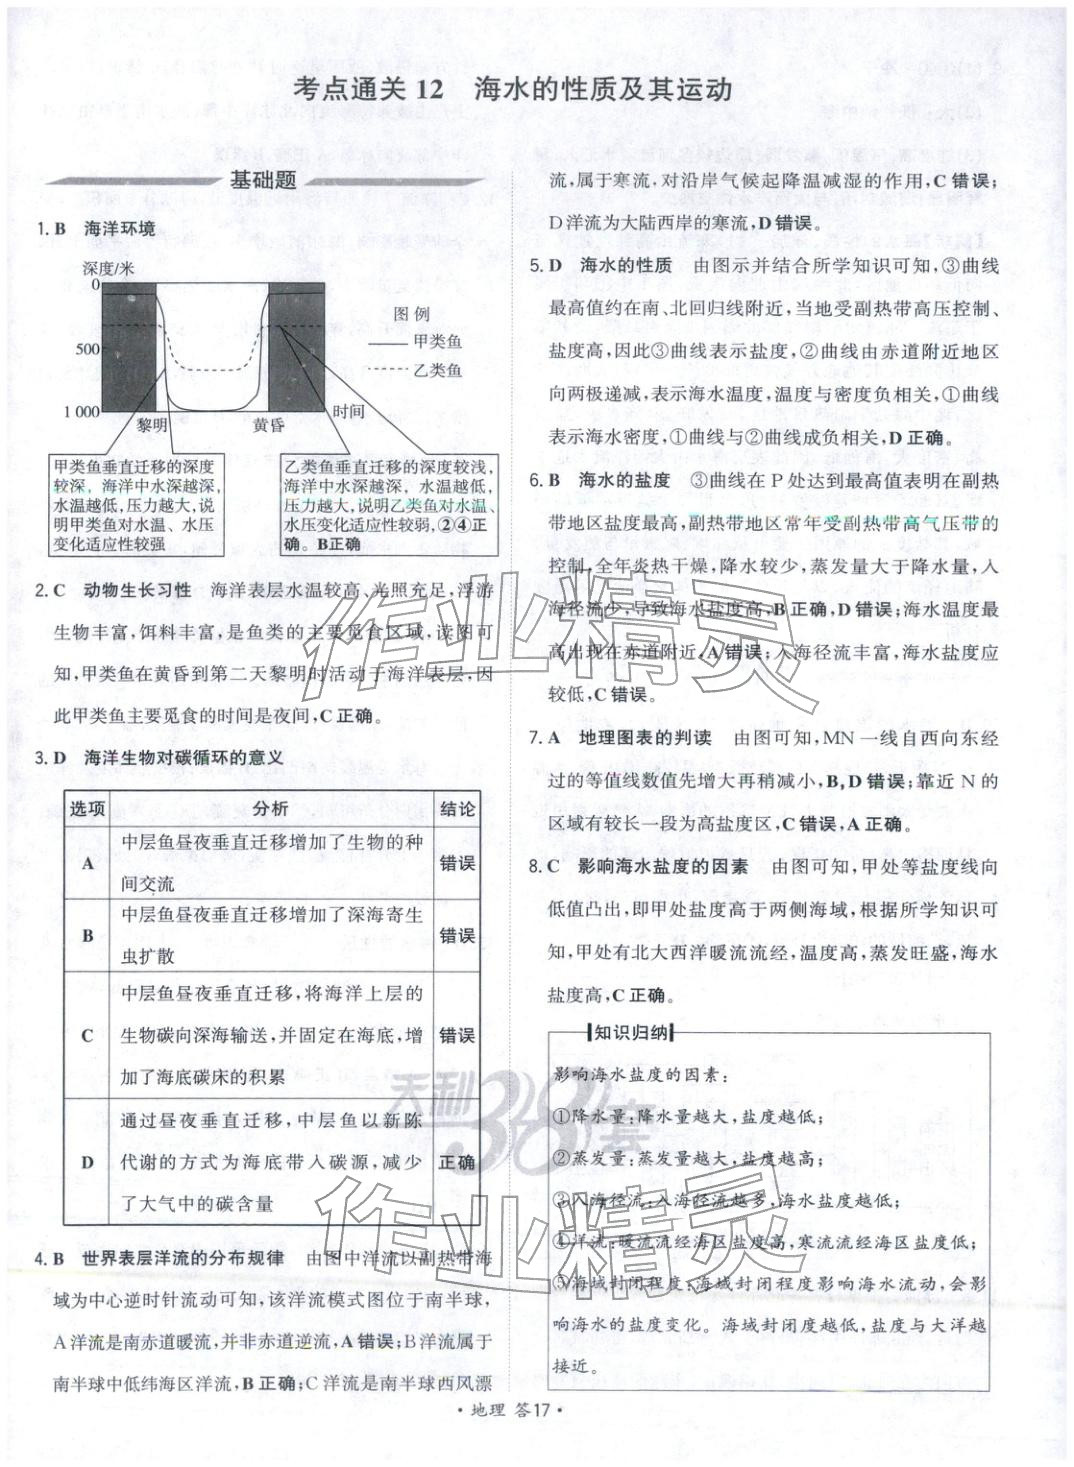 考点通关12 海水的性质及其运动
基础题
1. B 海洋环境
深度/米
0
500
1 000
黎明
黄昏
时间
图例
甲类鱼
乙类鱼
甲类鱼垂直迁移的深度
较深，海洋中水深越深，
水温越低，压力越大，说
明甲类鱼对水温、水压
变化适应性较强
乙类鱼垂直迁移的深度较浅，
海洋中水深越深，水温越低，
压力越大，说明乙类鱼对水温、
水压变化适应性较弱，②④正
确。B正确
2. C 动物生长习性 海洋表层水温较高、光照充足，浮游
生物丰富，饵料丰富，是鱼类的主要觅食区域，读图可
知，甲类鱼在黄昏到第二天黎明时活动于海洋表层，因
此甲类鱼主要觅食的时间是夜间，C正确。
3. D 海洋生物对碳循环的意义
选项 分析 结论
A 中层鱼昼夜垂直迁移增加了生物的种
间交流 错误
B 中层鱼昼夜垂直迁移增加了深海寄生
虫扩散 错误
C 中层鱼昼夜垂直迁移，将海洋上层的
生物碳向深海输送，并固定在海底，增
加了海底碳床的积累 错误
D 通过昼夜垂直迁移，中层鱼以新陈
代谢的方式为海底带入碳源，减少
了大气中的碳含量 正确
4. B 世界表层洋流的分布规律 由图中洋流以副热带海
域为中心逆时针流动可知，该洋流模式图位于南半球，
A洋流是南赤道暖流，并非赤道逆流，A错误；B洋流属于
南半球中低纬海区洋流，B正确；C洋流是南半球西风漂
流，属于寒流，对沿岸气候起降温减湿的作用，C错误；
D洋流为大陆西岸的寒流，D错误。
5. D 海水的性质 由图示并结合所学知识可知，③曲线
最高值约在南、北回归线附近，当地受副热带高压控制、
盐度高，因此③曲线表示盐度，②曲线由赤道附近地区
向两极递减，表示海水温度，温度与密度负相关，①曲线
表示海水密度，①曲线与②曲线成负相关，D正确。
6. B 海水的盐度 ③曲线在P处达到最高值表明在副热
带地区盐度最高，副热带地区常年受副热带高气压带的
控制，全年炎热干燥，降水较少，蒸发量大于降水量，入
海径流少，导致海水盐度高，B正确，D错误；海水温度最
高出现在赤道附近，A错误；入海径流丰富，海水盐度应
较低，C错误。
7. A 地理图表的判读 由图可知，MN一线自西向东经
过的等值线数值先增大再稍减小，B、D错误；靠近N的
区域有较长一段为高盐度区，C错误，A正确。
8. C 影响海水盐度的因素 由图可知，甲处等盐度线向
低值凸出，即甲处盐度高于两侧海域，根据所学知识可
知，甲处有北大西洋暖流流经，温度高，蒸发旺盛，海水
盐度高，C正确。
知识归纳
影响海水盐度的因素：
①降水量：降水量越大，盐度越低；
②蒸发量：蒸发量越大，盐度越高；
③入海径流：入海径流越多，海水盐度越低；
④洋流：暖流流经海区盐度高，寒流流经海区盐度低；
⑤海域封闭程度：海域封闭程度影响海水流动，会影
响海水的盐度变化。海域封闭度越低，盐度与大洋越
接近。
作业精灵
天利38套
作业精灵
·地理 答17·